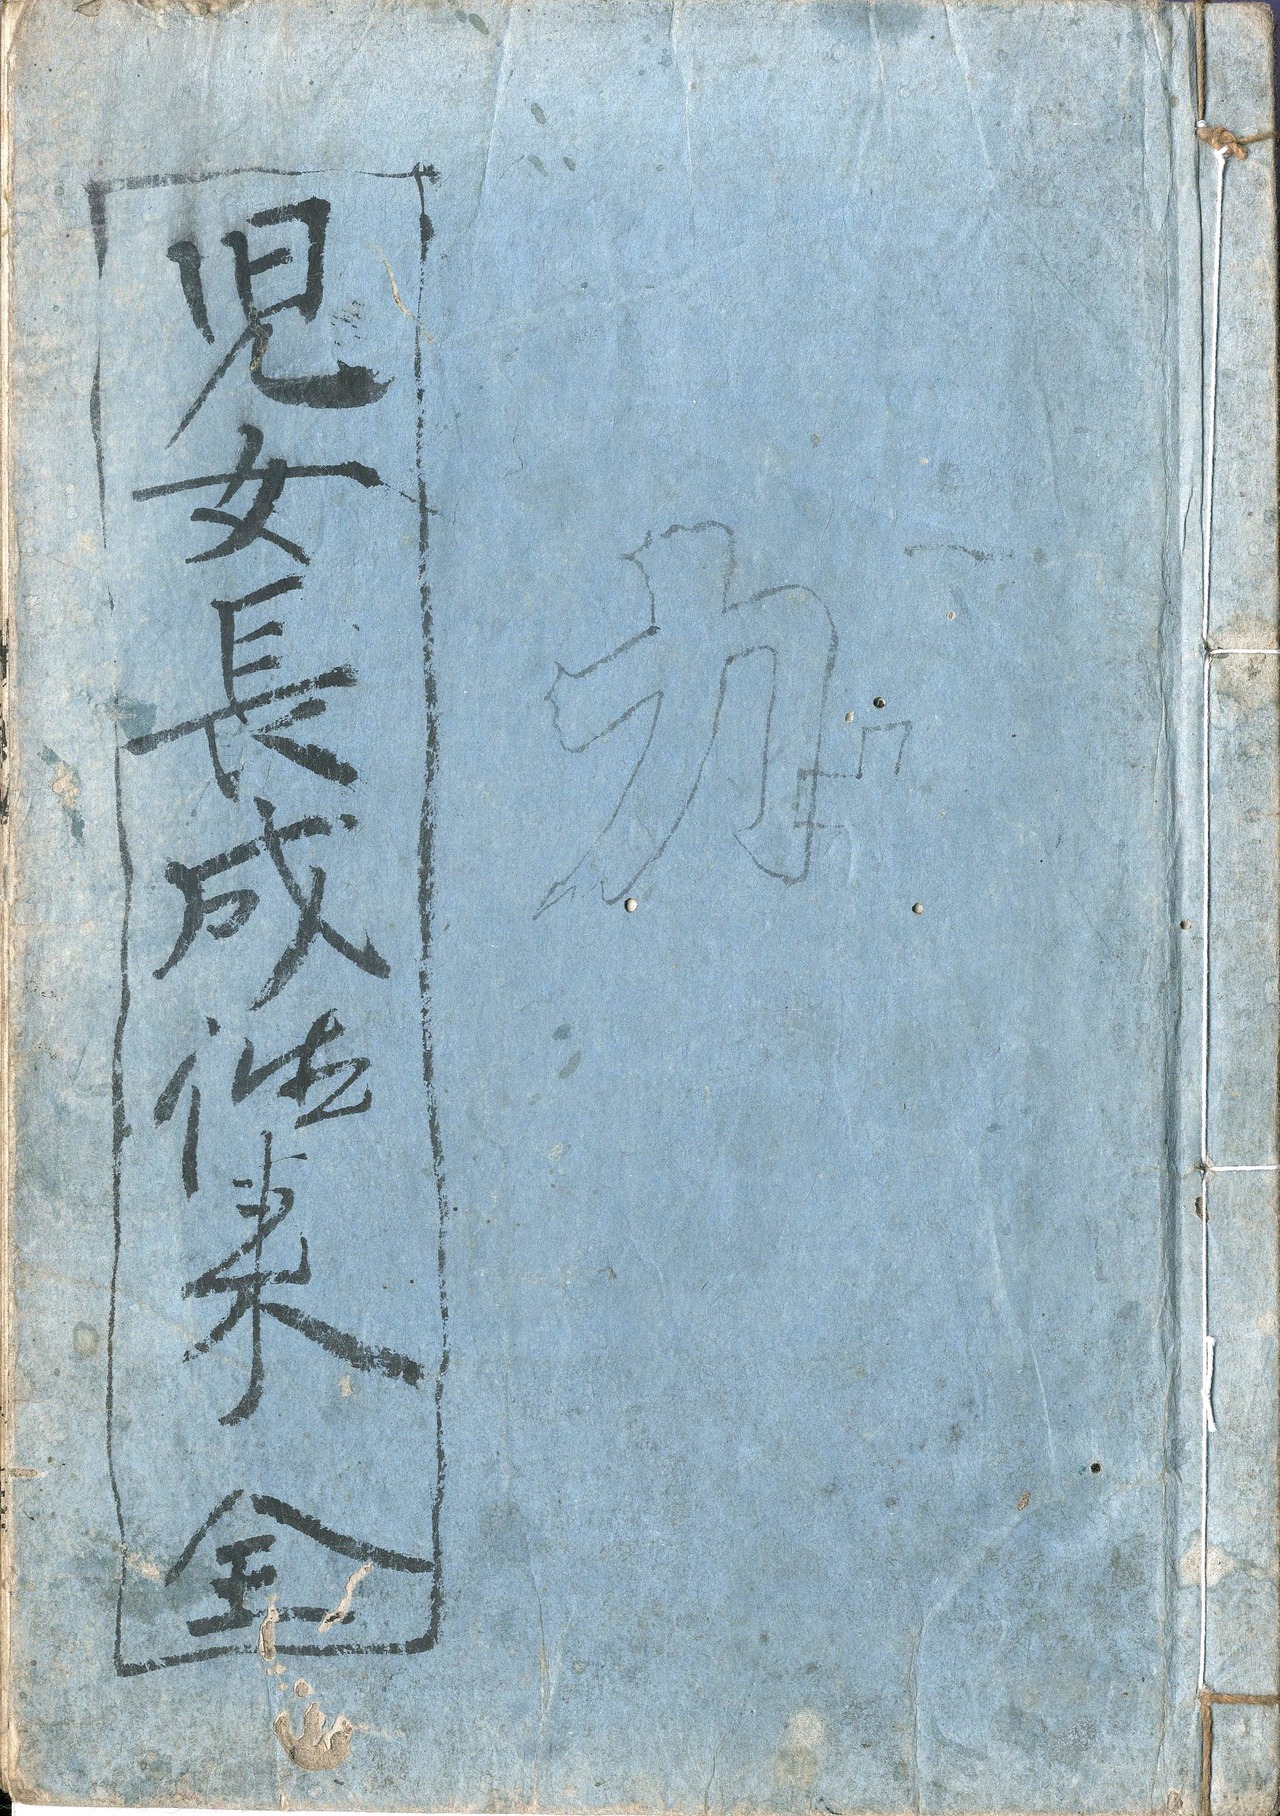 児女長成往来 全